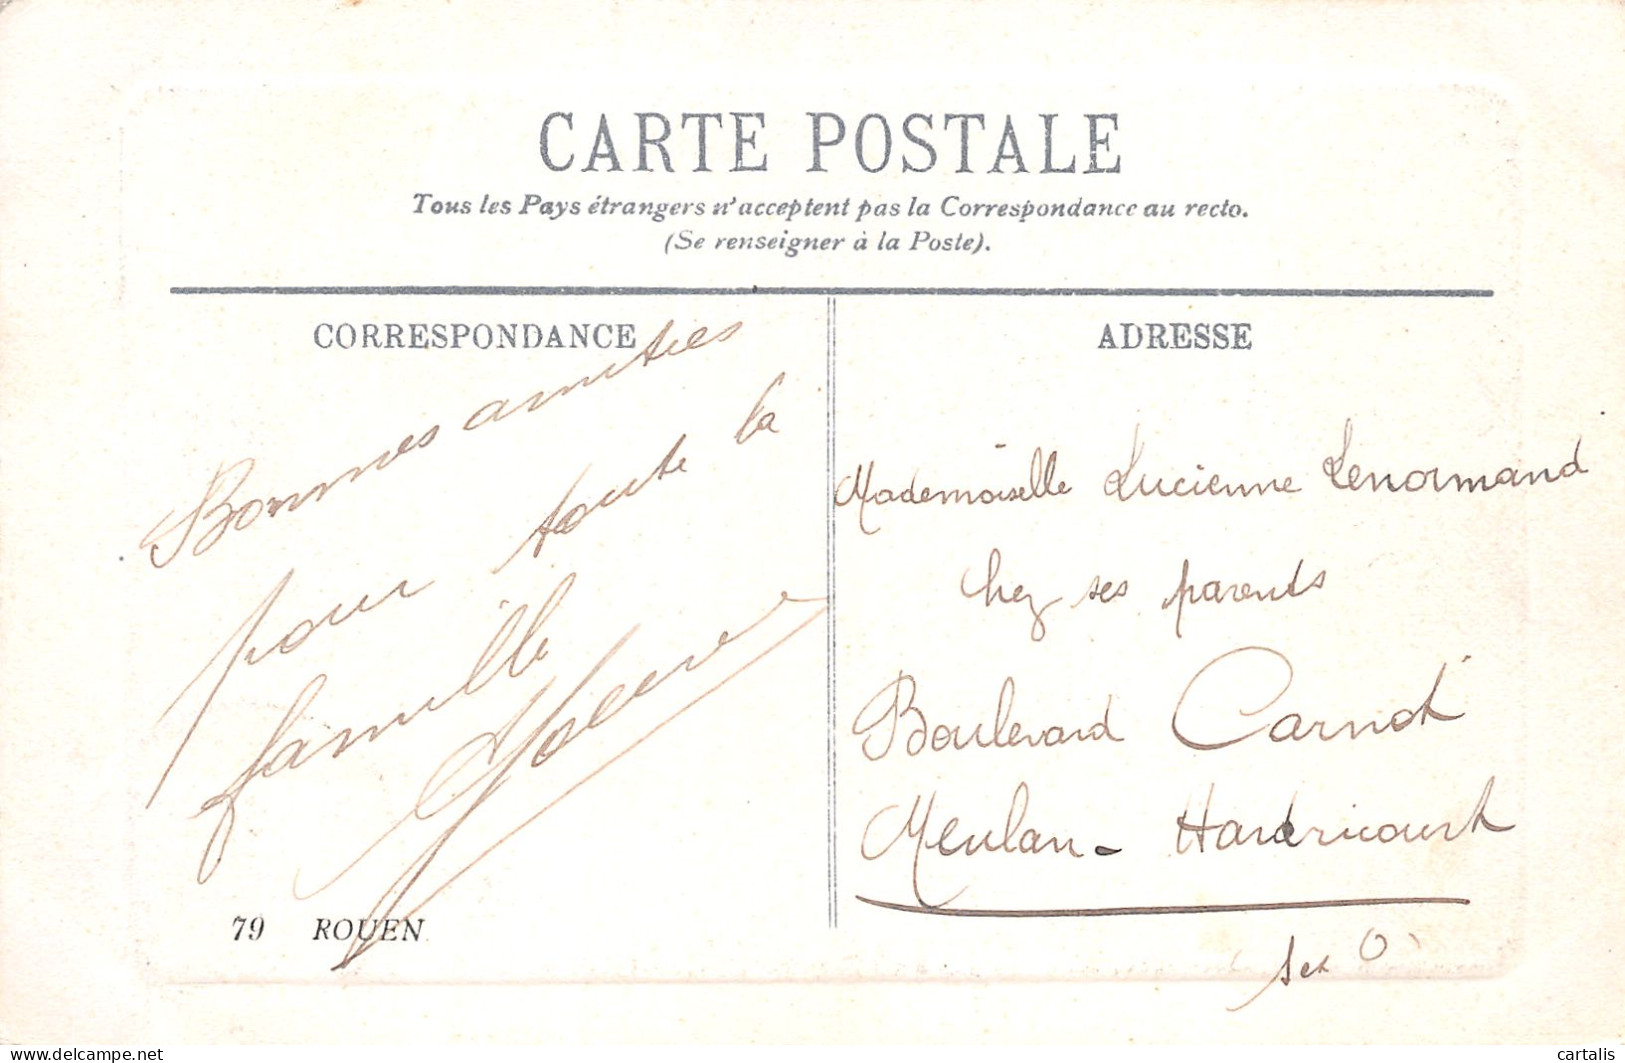 CARTE POSTALE
Tous les Pays étrangers n'acceptent pas la Correspondance au recto.
(Se renseigner à la Poste).
CORRESPONDANCE
Bonnes amities
pour toute la
famille
79 ROUEN
ADRESSE
Mademoiselle Lucienne Lenormand
chez ses parents
Boulevard Carnot
Meulan - Hardricourt
Set O
delcampe.net
cartalis